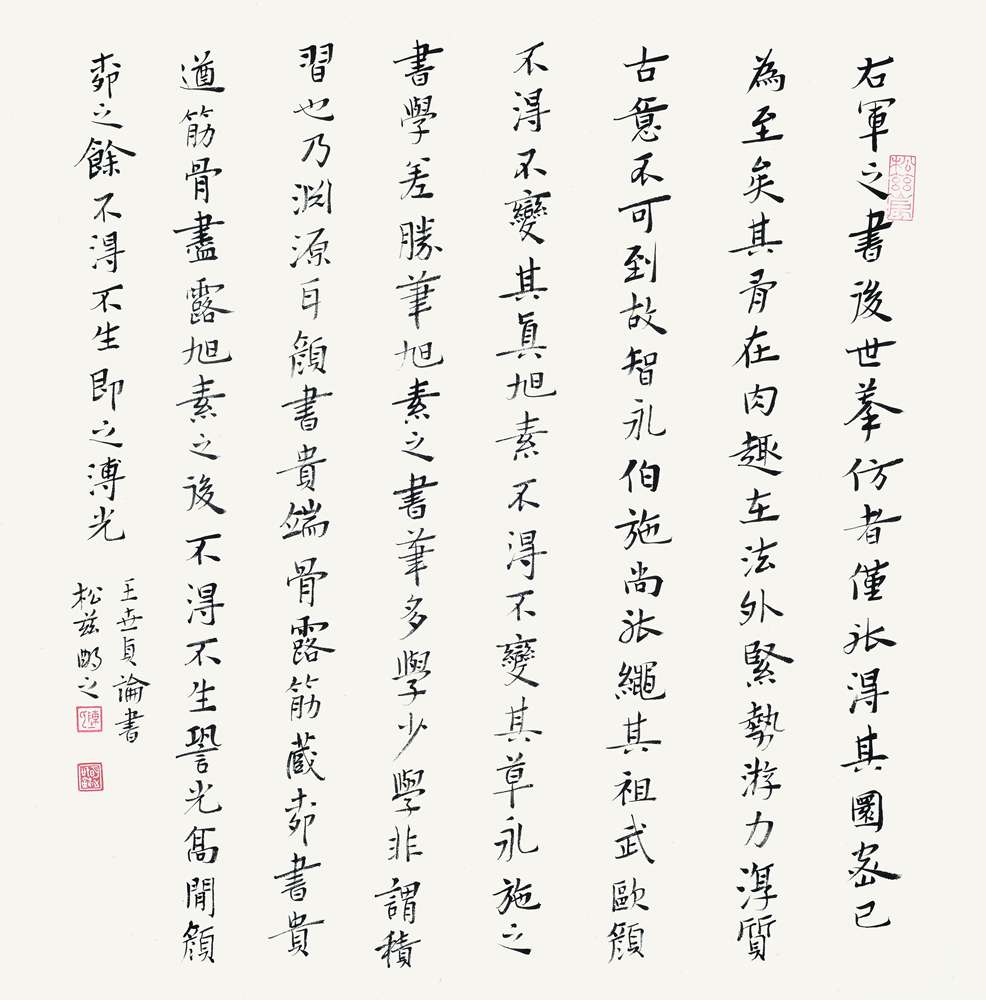 右軍之書後世摹仿者僅能得其圓密已
為至矣其骨在肉趣在法外緊勢游力淳質
古意不可到故智永伯施尚能繩其祖武歐顏
不得不變其真旭素不得不變其草永施之
書學差勝筆旭素之書筆多學少學非謂積
習也乃淵源耳顏書貴端骨露筋藏柳書貴
遒筋骨盡露旭素之後不得不生䛒光高閒顏
柳之餘不得不生即之溥光
王世貞論書
松茲之